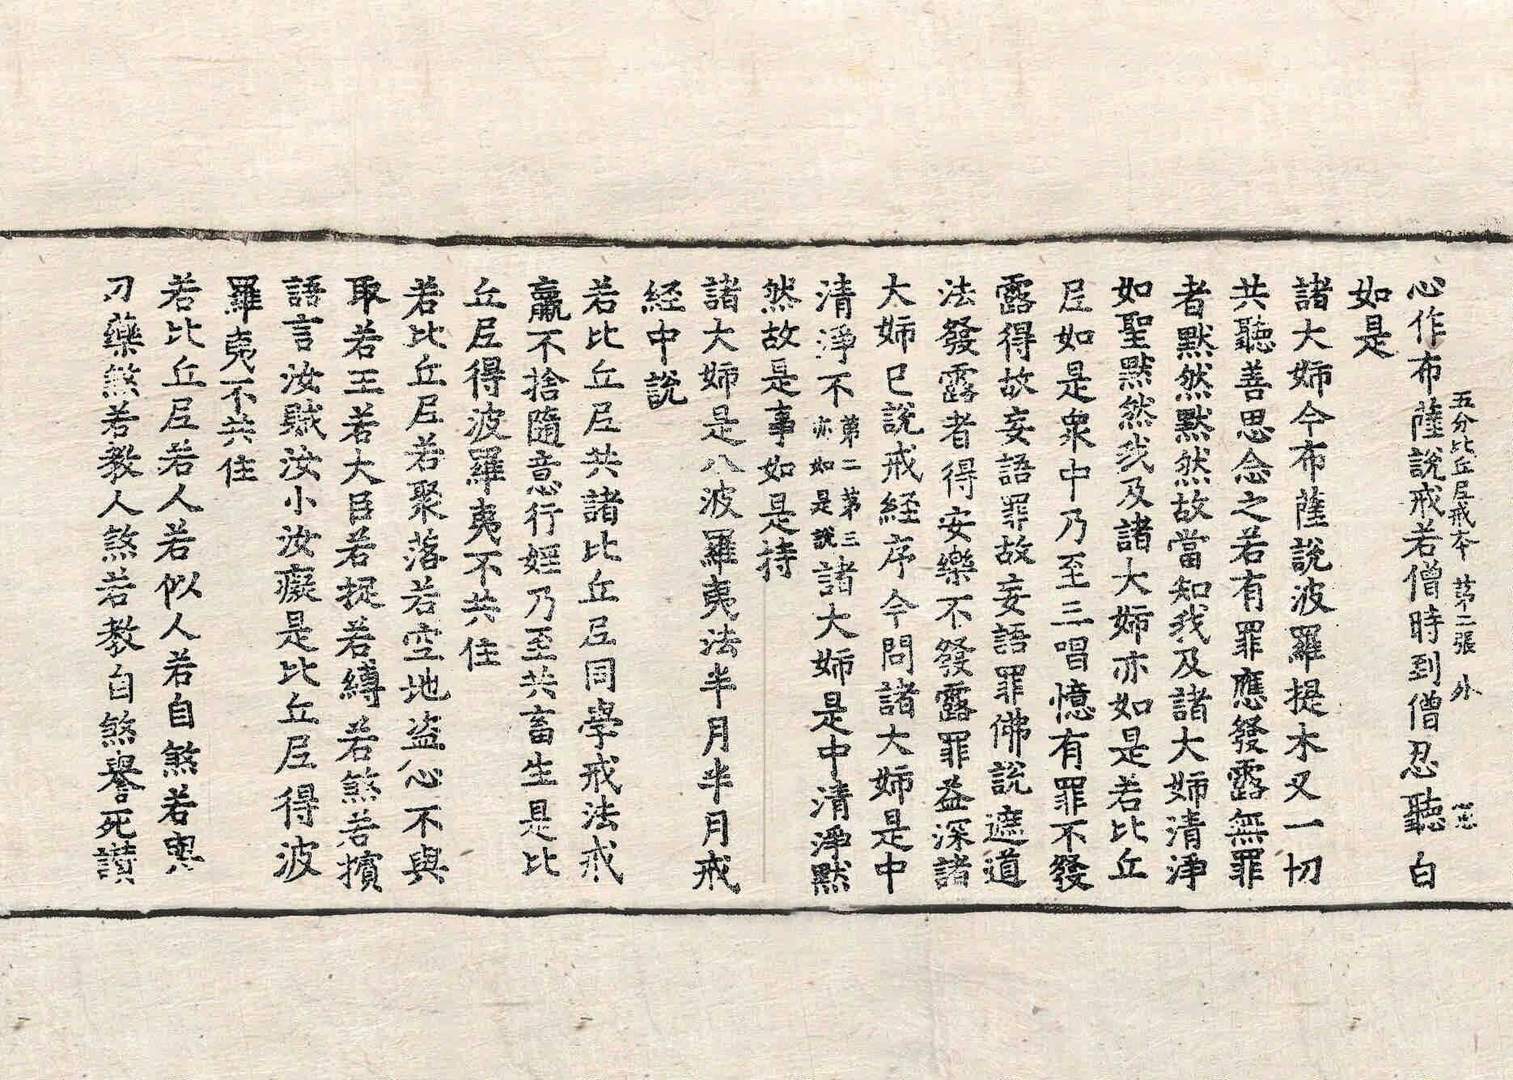 五分比丘尼戒本 第二張 外
心作布薩說戒若僧時到僧忍聽白
如是
諸大姉今布薩說波羅提木叉一切
共聽善思念之若有罪應發露無罪
者默然默然故當知我及諸大姉清淨
如聖默然我及諸大姉亦如是若比丘
尼如是衆中乃至三唱憶有罪不發
露得故妄語罪故妄語罪佛說遮道
法發露者得安樂不發露罪益深諸
大姉已說戒経序今問諸大姉是中
清淨不第二第三亦如是說諸大姉是中清淨默
然故是事如是持
諸大姉是八波羅夷法半月半月戒
経中說
若比丘尼共諸比丘尼同學戒法戒
羸不捨隨意行婬乃至共畜生是比
丘尼得波羅夷不共住
若比丘尼若聚落若空地盜心不與
取若王若大臣若捉若縛若煞若擯
語言汝賊汝小汝癡是比丘尼得波
羅夷不共住
若比丘尼若人若似人若自煞若與
刀藥煞若教人煞若教自煞譽死讃